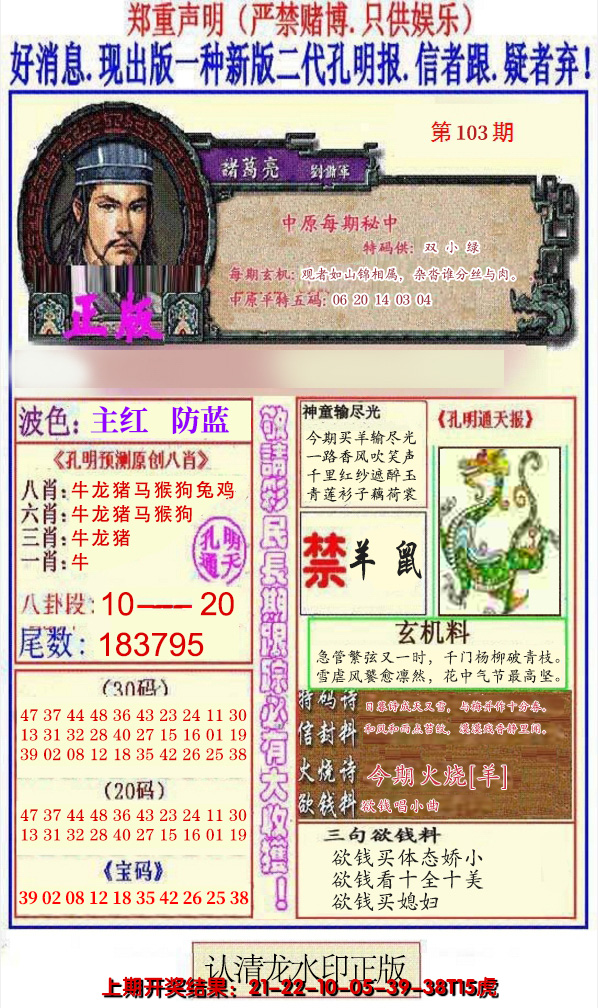 郑重声明（严禁赌博.只供娱乐）
好消息.现出版一种新版二代孔明报.信者跟.疑者弃！
第103期
諸葛亮
劉備軍
中原每期秘中
特码供：双小绿
每期玄机：观者如山锦相属，杂沓谁分丝与肉。
中原平特五码：06 20 14 03 04
正版
波色：主红 防蓝
《孔明预测原创八肖》
八肖：牛龙猪马猴狗兔鸡
六肖：牛龙猪马猴狗
三肖：牛龙猪
一肖：牛
孔明
通天
八卦段：10——20
尾数：183795
（30码）
47 37 44 48 36 43 23 24 11 30
13 31 32 28 40 27 15 16 01 19
39 02 08 12 18 35 42 26 25 38
（20码）
47 37 44 48 36 43 23 24 11 30
13 31 32 28 40 27 15 16 01 19
《宝码》
39 02 08 12 18 35 42 26 25 38
敬請彩民長期跟踪必有大收獲！
神童输尽光
今期买羊输尽光
一路香风吹笑声
千里红纱遮醉玉
青莲衫子藕荷裳
《孔明通天报》
禁 羊 鼠
玄机料
急管繁弦又一时，千门杨柳破青枝。
雪虐风饕愈凛然，花中气节最高坚。
特码诗
日暮诗成天又雪，与梅并作十分春。
信封料
和风和雨点苔纹，漠漠残香静里闻。
火烧诗
今期火烧[羊]
欲钱料
欲钱唱小曲
三句欲钱料
欲钱买体态娇小
欲钱看十全十美
欲钱买媳妇
认清龙水印正版
上期开奖结果：21-22-10-05-39-38T15虎